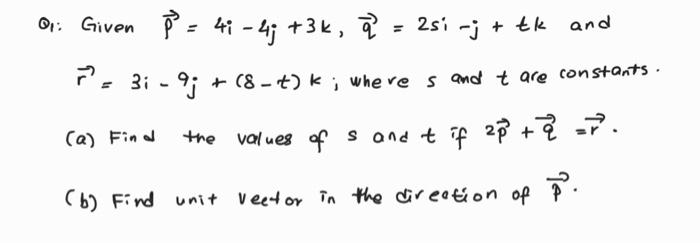 Q1: Given p⃗ = 4i - 4j + 3k, q⃗ = 2si - j + tk and
r⃗ = 3i - 9j + (8 - t) k ; where s and t are constants.
(a) Find the values of s and t if 2p⃗ + q⃗ = r⃗.
(b) Find unit vector in the direction of p⃗.